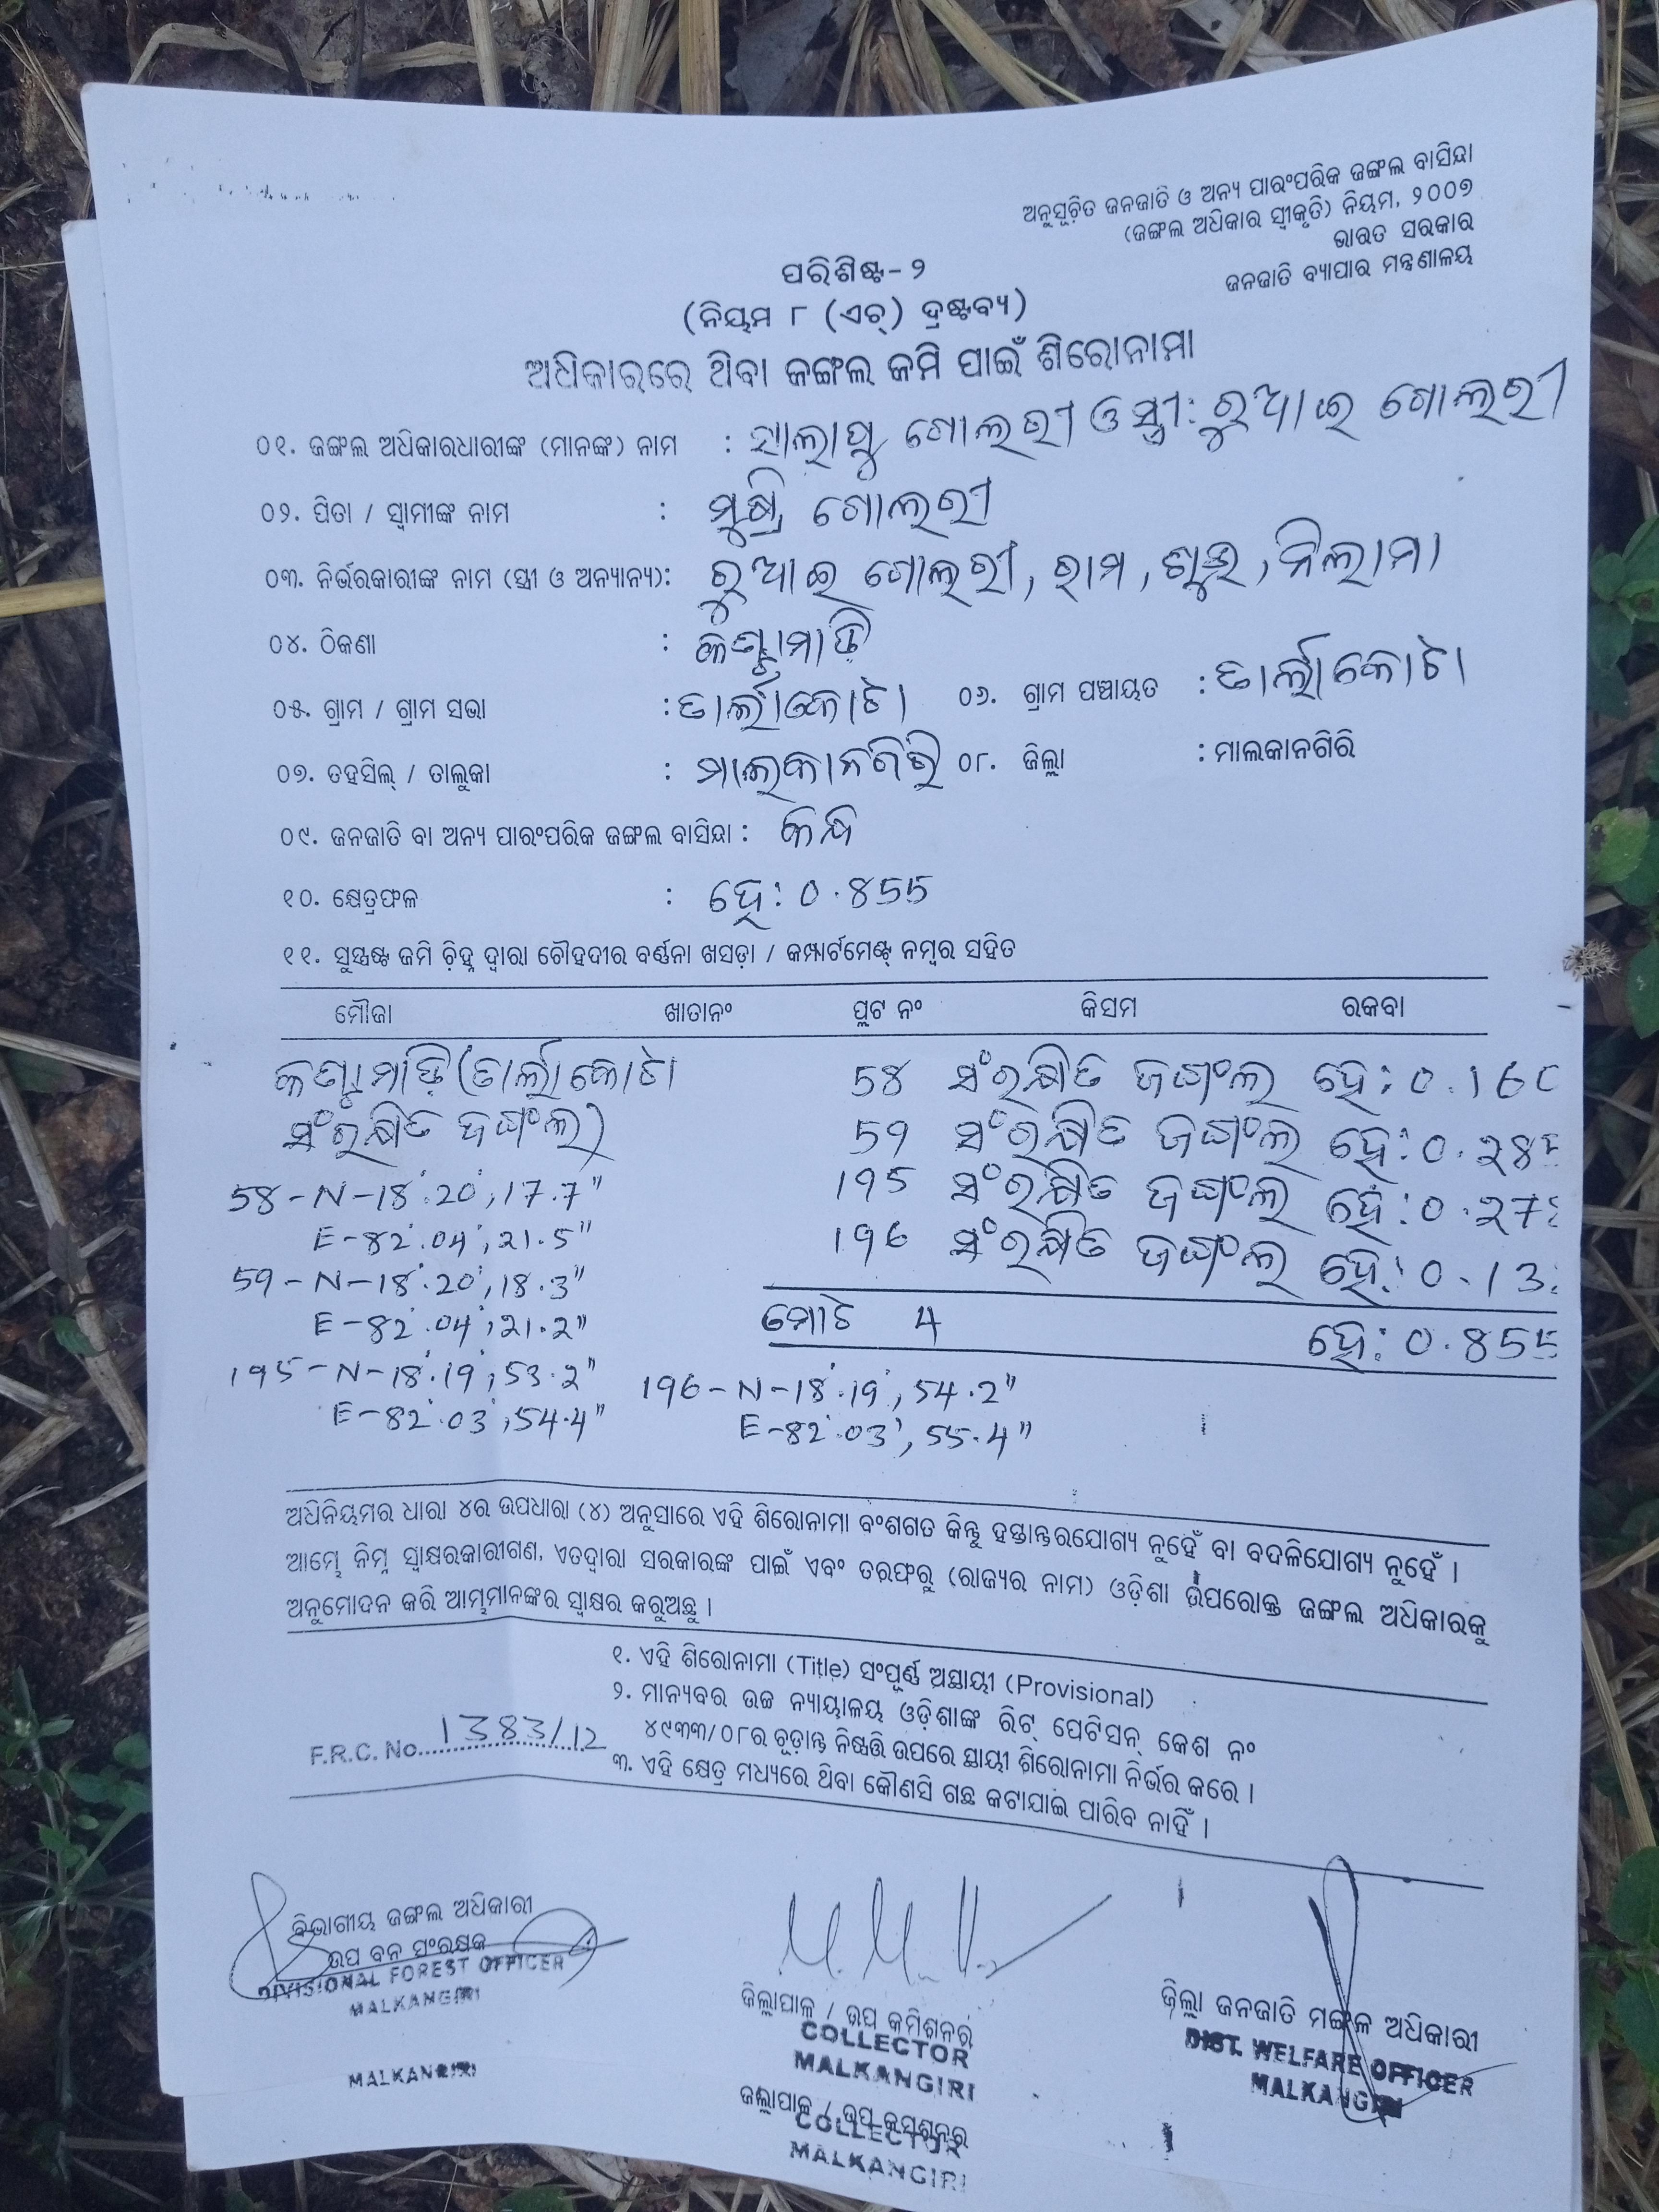 ଅନୁସୂଚିତ ଜନଜାତି ଓ ଅନ୍ୟ ପାରଂପରିକ ଜଙ୍ଗଲ ବାସିନ୍ଦା
(ଜଙ୍ଗଲ ଅଧିକାର ସ୍ୱୀକୃତି) ନିୟମ, ୨୦୦୭
ଭାରତ ସରକାର
ଜନଜାତି ବ୍ୟାପାର ମନ୍ତ୍ରଣାଳୟ
ପରିଶିଷ୍ଟ-୨
(ନିୟମ ୮ (ଏଚ୍) ଦ୍ରଷ୍ଟବ୍ୟ)
ଅଧିକାରରେ ଥିବା ଜଙ୍ଗଲ ଜମି ପାଇଁ ଶିରୋନାମା
୦୧. ଜଙ୍ଗଲ ଅଧିକାରଧାରୀଙ୍କ (ମାନଙ୍କ) ନାମ : ଗୋଲରୀ ଓ ସ୍ତ୍ରୀ: ରୁଆଇ ଗୋଲରୀ
୦୨. ପିତା / ସ୍ୱାମୀଙ୍କ ନାମ : ଗୋଲରୀ
୦୩. ନିର୍ଭରକାରୀଙ୍କ ନାମ (ସ୍ତ୍ରୀ ଓ ଅନ୍ୟାନ୍ୟ): ରୁଆଇ ଗୋଲରୀ, ରାମ, ନିଲାମା
୦୪. ଠିକଣା :
୦୫. ଗ୍ରାମ / ଗ୍ରାମ ସଭା : ତାର୍ଲାକୋଟା ୦୬. ଗ୍ରାମ ପଞ୍ଚାୟତ : ତାର୍ଲାକୋଟା
୦୭. ତହସିଲ୍ / ତାଲୁକା : ମାଲକାନଗିରି ୦୮. ଜିଲ୍ଲା : ମାଲକାନଗିରି
୦୯. ଜନଜାତି ବା ଅନ୍ୟ ପାରଂପରିକ ଜଙ୍ଗଲ ବାସିନ୍ଦା : କନ୍ଧ
୧୦. କ୍ଷେତ୍ରଫଳ : ହେ: 0.855
୧୧. ସୁସ୍ପଷ୍ଟ ଜମି ଚିହ୍ନ ଦ୍ୱାରା ଚୌହଦୀର ବର୍ଣ୍ଣନା ଖସଡ଼ା / କମ୍ପାର୍ଟମେଣ୍ଟ୍ ନମ୍ବର ସହିତ
ମୌଜା ଖାତାନଂ ପ୍ଲଟ ନଂ କିସମ ରକବା
(ତାର୍ଲାକୋଟା 58 ସଂରକ୍ଷିତ ଜଙ୍ଗଲ ହେ: 0.160
ସଂରକ୍ଷିତ ଜଙ୍ଗଲ) 59 ସଂରକ୍ଷିତ ଜଙ୍ଗଲ ହେ: 0.285
58-N-18°.20', 17.7" 195 ସଂରକ୍ଷିତ ଜଙ୍ଗଲ ହେ: 0.27
E-82°.04', 21.5" 196 ସଂରକ୍ଷିତ ଜଙ୍ଗଲ ହେ: 0.13
59-N-18°.20', 18.3"
E-82°.04', 21.2" ମୋଟ 4 ହେ: 0.855
195-N-18°.19', 53.2" 196-N-18°.19', 54.2"
E-82°.03', 54.4" E-82°.03', 55.4"
ଅଧିନିୟମର ଧାରା ୪ର ଉପଧାରା (୪) ଅନୁସାରେ ଏହି ଶିରୋନାମା ବଂଶଗତ କିନ୍ତୁ ହସ୍ତାନ୍ତରଯୋଗ୍ୟ ନୁହେଁ ବା ବଦଳିଯୋଗ୍ୟ ନୁହେଁ ।
ଆମ୍ଭେ ନିମ୍ନ ସ୍ୱାକ୍ଷରକାରୀଗଣ, ଏତଦ୍ୱାରା ସରକାରଙ୍କ ପାଇଁ ଏବଂ ତରଫରୁ (ରାଜ୍ୟର ନାମ) ଓଡ଼ିଶା ଉପରୋକ୍ତ ଜଙ୍ଗଲ ଅଧିକାରକୁ
ଅନୁମୋଦନ କରି ଆମ୍ଭମାନଙ୍କର ସ୍ୱାକ୍ଷର କରୁଅଛୁ ।
୧. ଏହି ଶିରୋନାମା (Title) ସଂପୂର୍ଣ୍ଣ ଅସ୍ଥାୟୀ (Provisional)
୨. ମାନ୍ୟବର ଉଚ୍ଚ ନ୍ୟାୟାଳୟ ଓଡ଼ିଶାଙ୍କ ରିଟ୍ ପେଟିସନ୍ କେଶ ନଂ
୪୯୩୩/୦୮ର ଚୂଡ଼ାନ୍ତ ନିଷ୍ପତ୍ତି ଉପରେ ସ୍ଥାୟୀ ଶିରୋନାମା ନିର୍ଭର କରେ ।
F.R.C. No. 1383/12
୩. ଏହି କ୍ଷେତ୍ର ମଧ୍ୟରେ ଥିବା କୌଣସି ଗଛ କଟାଯାଇ ପାରିବ ନାହିଁ ।
ବିଭାଗୀୟ ଜଙ୍ଗଲ ଅଧିକାରୀ
ଉପ ବନ ସଂରକ୍ଷକ
DIVISIONAL FOREST OFFICER
MALKANGIRI
ଜିଲ୍ଲାପାଳ / ଉପ କମିଶନର୍
COLLECTOR
MALKANGIRI
ଜିଲ୍ଲା ଜନଜାତି ମଙ୍ଗଳ ଅଧିକାରୀ
DIST. WELFARE OFFICER
MALKANGIRI
MALKANGIRI
COLLECTOR
MALKANGIRI